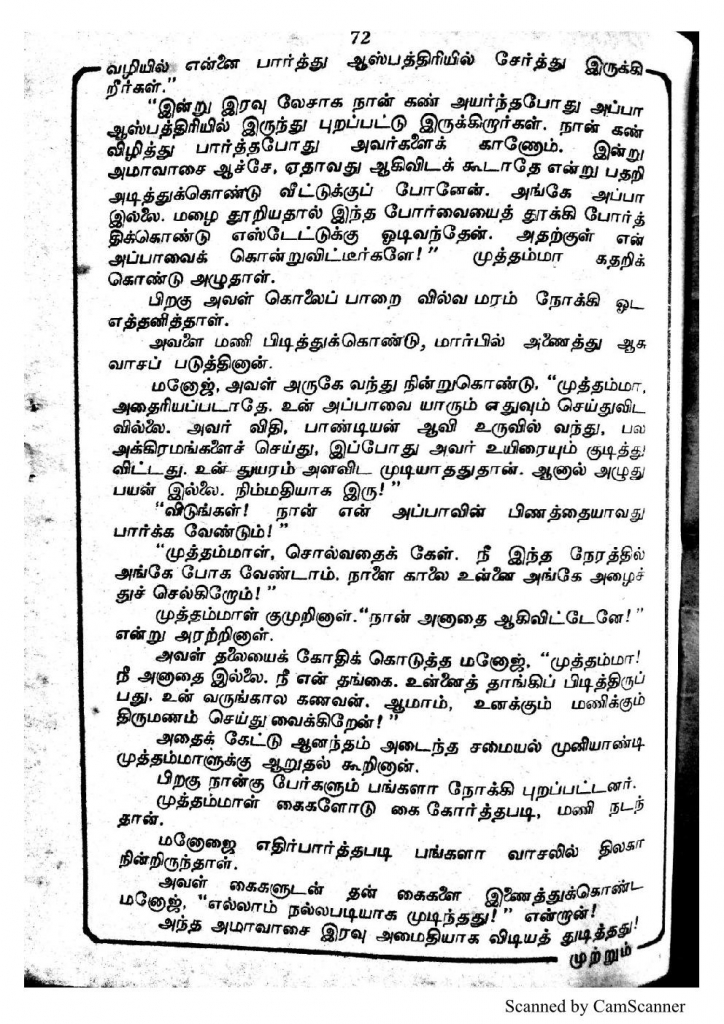 72
வழியில் என்னை பார்த்து ஆஸ்பத்திரியில் சேர்த்து இருக்கி
றீர்கள்."
"இன்று இரவு லேசாக நான் கண் அயர்ந்தபோது அப்பா
ஆஸ்பத்திரியில் இருந்து புறப்பட்டு இருக்கிறார்கள். நான் கண்
விழித்து பார்த்தபோது அவர்களைக் காணோம். இன்று
அமாவாசை ஆச்சே, ஏதாவது ஆகிவிடக் கூடாதே என்று பதறி
அடித்துக்கொண்டு வீட்டுக்குப் போனேன். அங்கே அப்பா
இல்லை. மழை தூறியதால் இந்த போர்வையைத் தூக்கி போர்த்
திக்கொண்டு எஸ்டேட்டுக்கு ஓடிவந்தேன். அதற்குள் என்
அப்பாவைக் கொன்றுவிட்டீர்களே!" முத்தம்மா கதறிக்
கொண்டு அழுதாள்.
பிறகு அவள் கொலைப் பாறை வில்வ மரம் நோக்கி ஓட
எத்தனித்தாள்.
அவளை மணி பிடித்துக்கொண்டு, மார்பில் அணைத்து ஆசு
வாசப் படுத்தினான்.
மனோஜ், அவள் அருகே வந்து நின்றுகொண்டு, "முத்தம்மா,
அதைரியப்படாதே. உன் அப்பாவை யாரும் எதுவும் செய்துவிட
வில்லை. அவர் விதி, பாண்டியன் ஆவி உருவில் வந்து, பல
அக்கிரமங்களைச் செய்து, இப்போது அவர் உயிரையும் குடித்து
விட்டது. உன் துயரம் அளவிட முடியாததுதான். ஆனால் அழுது
பயன் இல்லை. நிம்மதியாக இரு!"
"விடுங்கள்! நான் என் அப்பாவின் பிணத்தையாவது
பார்க்க வேண்டும்!"
"முத்தம்மாள், சொல்வதைக் கேள். நீ இந்த நேரத்தில்
அங்கே போக வேண்டாம். நாளை காலை உன்னை அங்கே அழைச்
துச் செல்கிறோம்!"
முத்தம்மாள் குமுறினாள். "நான் அனாதை ஆகிவிட்டேனே!"
என்று அரற்றினாள்.
அவள் தலையைக் கோதிக் கொடுத்த மனோஜ், "முத்தம்மா!
நீ அனாதை இல்லை. நீ என் தங்கை. உன்னைத் தாங்கிப் பிடித்திருப்
பது. உன் வருங்கால கணவன். ஆமாம், உனக்கும் மணிக்கும்
திருமணம் செய்து வைக்கிறேன்!"
அதைக் கேட்டு ஆனந்தம் அடைந்த சமையல் முனியாண்டி
முத்தம்மாளுக்கு ஆறுதல் கூறினான்.
பிறகு நான்கு பேர்களும் பங்களா நோக்கி புறப்பட்டனர்.
முத்தம்மாள் கைகளோடு கை கோர்த்தபடி, மணி நடந்
தான்.
மனோஜை எதிர்பார்த்தபடி பங்களா வாசலில் திலகா
நின்றிருந்தாள்.
அவள் கைகளுடன் தன் கைகளை இணைத்துக்கொண்ட
மனோஜ், "எல்லாம் நல்லபடியாக முடிந்தது!" என்றான்!
அந்த அமாவாசை இரவு அமைதியாக விடியத் துடித்தது!
முற்றும்
Scanned by CamScanner